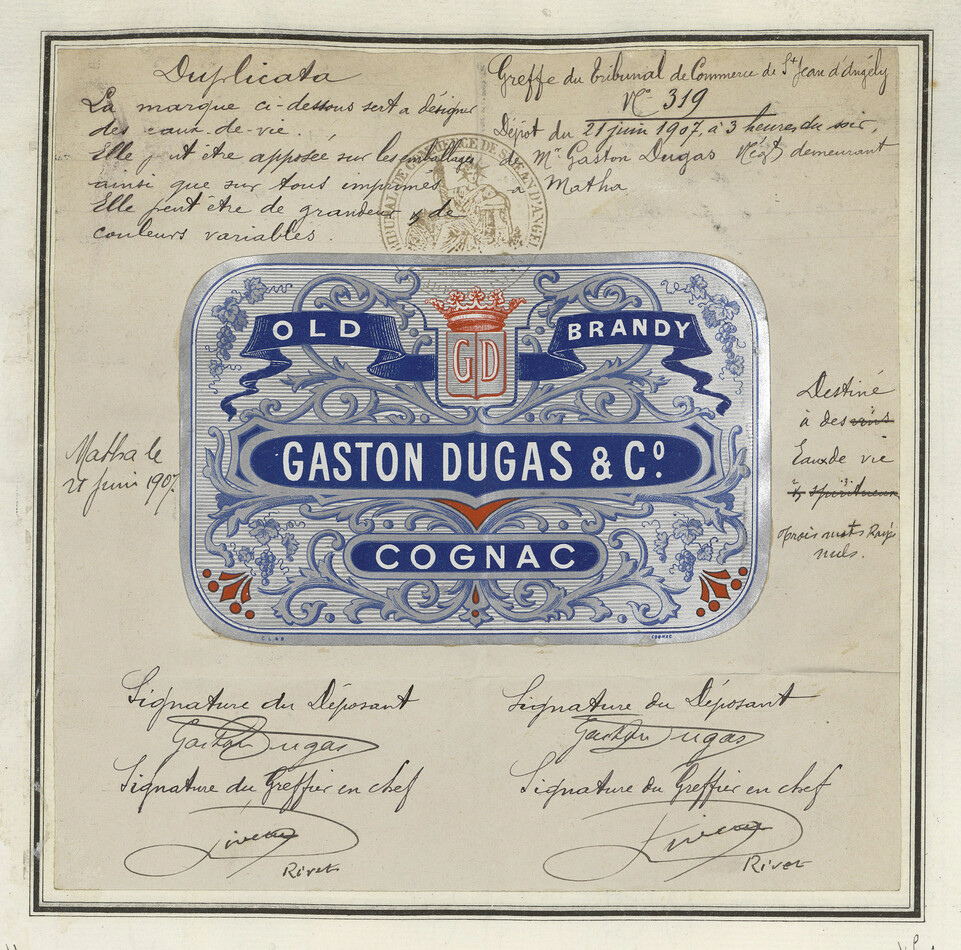 Duplicata
La marque ci-dessous sert a désigner
des eaux-de-vie.
Elle peut être apposée sur les emballages
ainsi que sur tous imprimés
Elle peut être de grandeur & de
couleurs variables.
Greffe du Tribunal de Commerce de St Jean d'Angély
No 319
Dépôt du 21 juin 1907, à 3 heures du soir,
de Mr Gaston Dugas Négt demeurant
a Matha
TRIBUNAL DE COMMERCE DE ST JEAN D'ANGELY
OLD
BRANDY
GD
GASTON DUGAS & Co.
COGNAC
Matha le
21 juin 1907.
Destiné
à des vins
Eaux de vie
& spiritueux
trois mots Rayés
nuls.
COGNAC
Signature du Déposant
Gaston Dugas
Signature du Greffier en chef
Rivet
Signature du Déposant
Gaston Dugas
Signature du Greffier en chef
Rivet